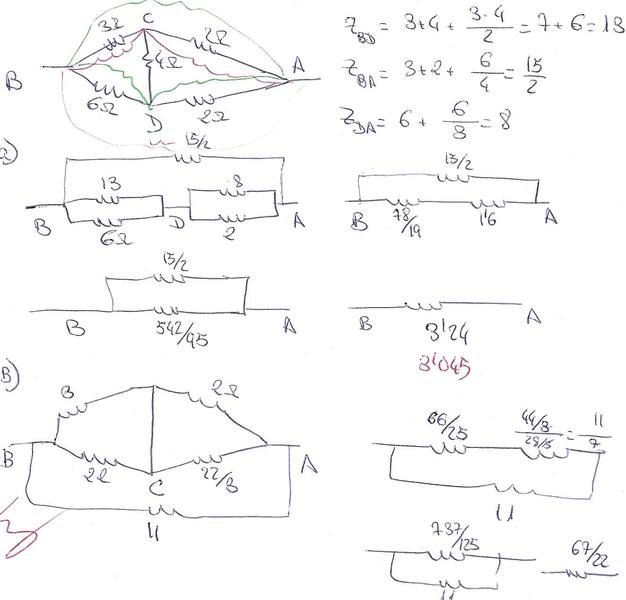 C
3Ω 2Ω
4Ω
B A
6Ω 2Ω
D
Z_BD = 3+4 + 3·4/2 = 7+6 = 13
Z_BA = 3+2 + 6/4 = 15/2
Z_DA = 6 + 6/3 = 8
15/2
13 8
B D A
6Ω 2
15/2
B A
78/19 1'6
15/2
B A
542/95
B A
3'24
3'045
B)
3 2Ω
B A
2Ω C 22/3
11
66/25 44/3 / 28/3 = 11/7
11
737/125 67/22
11